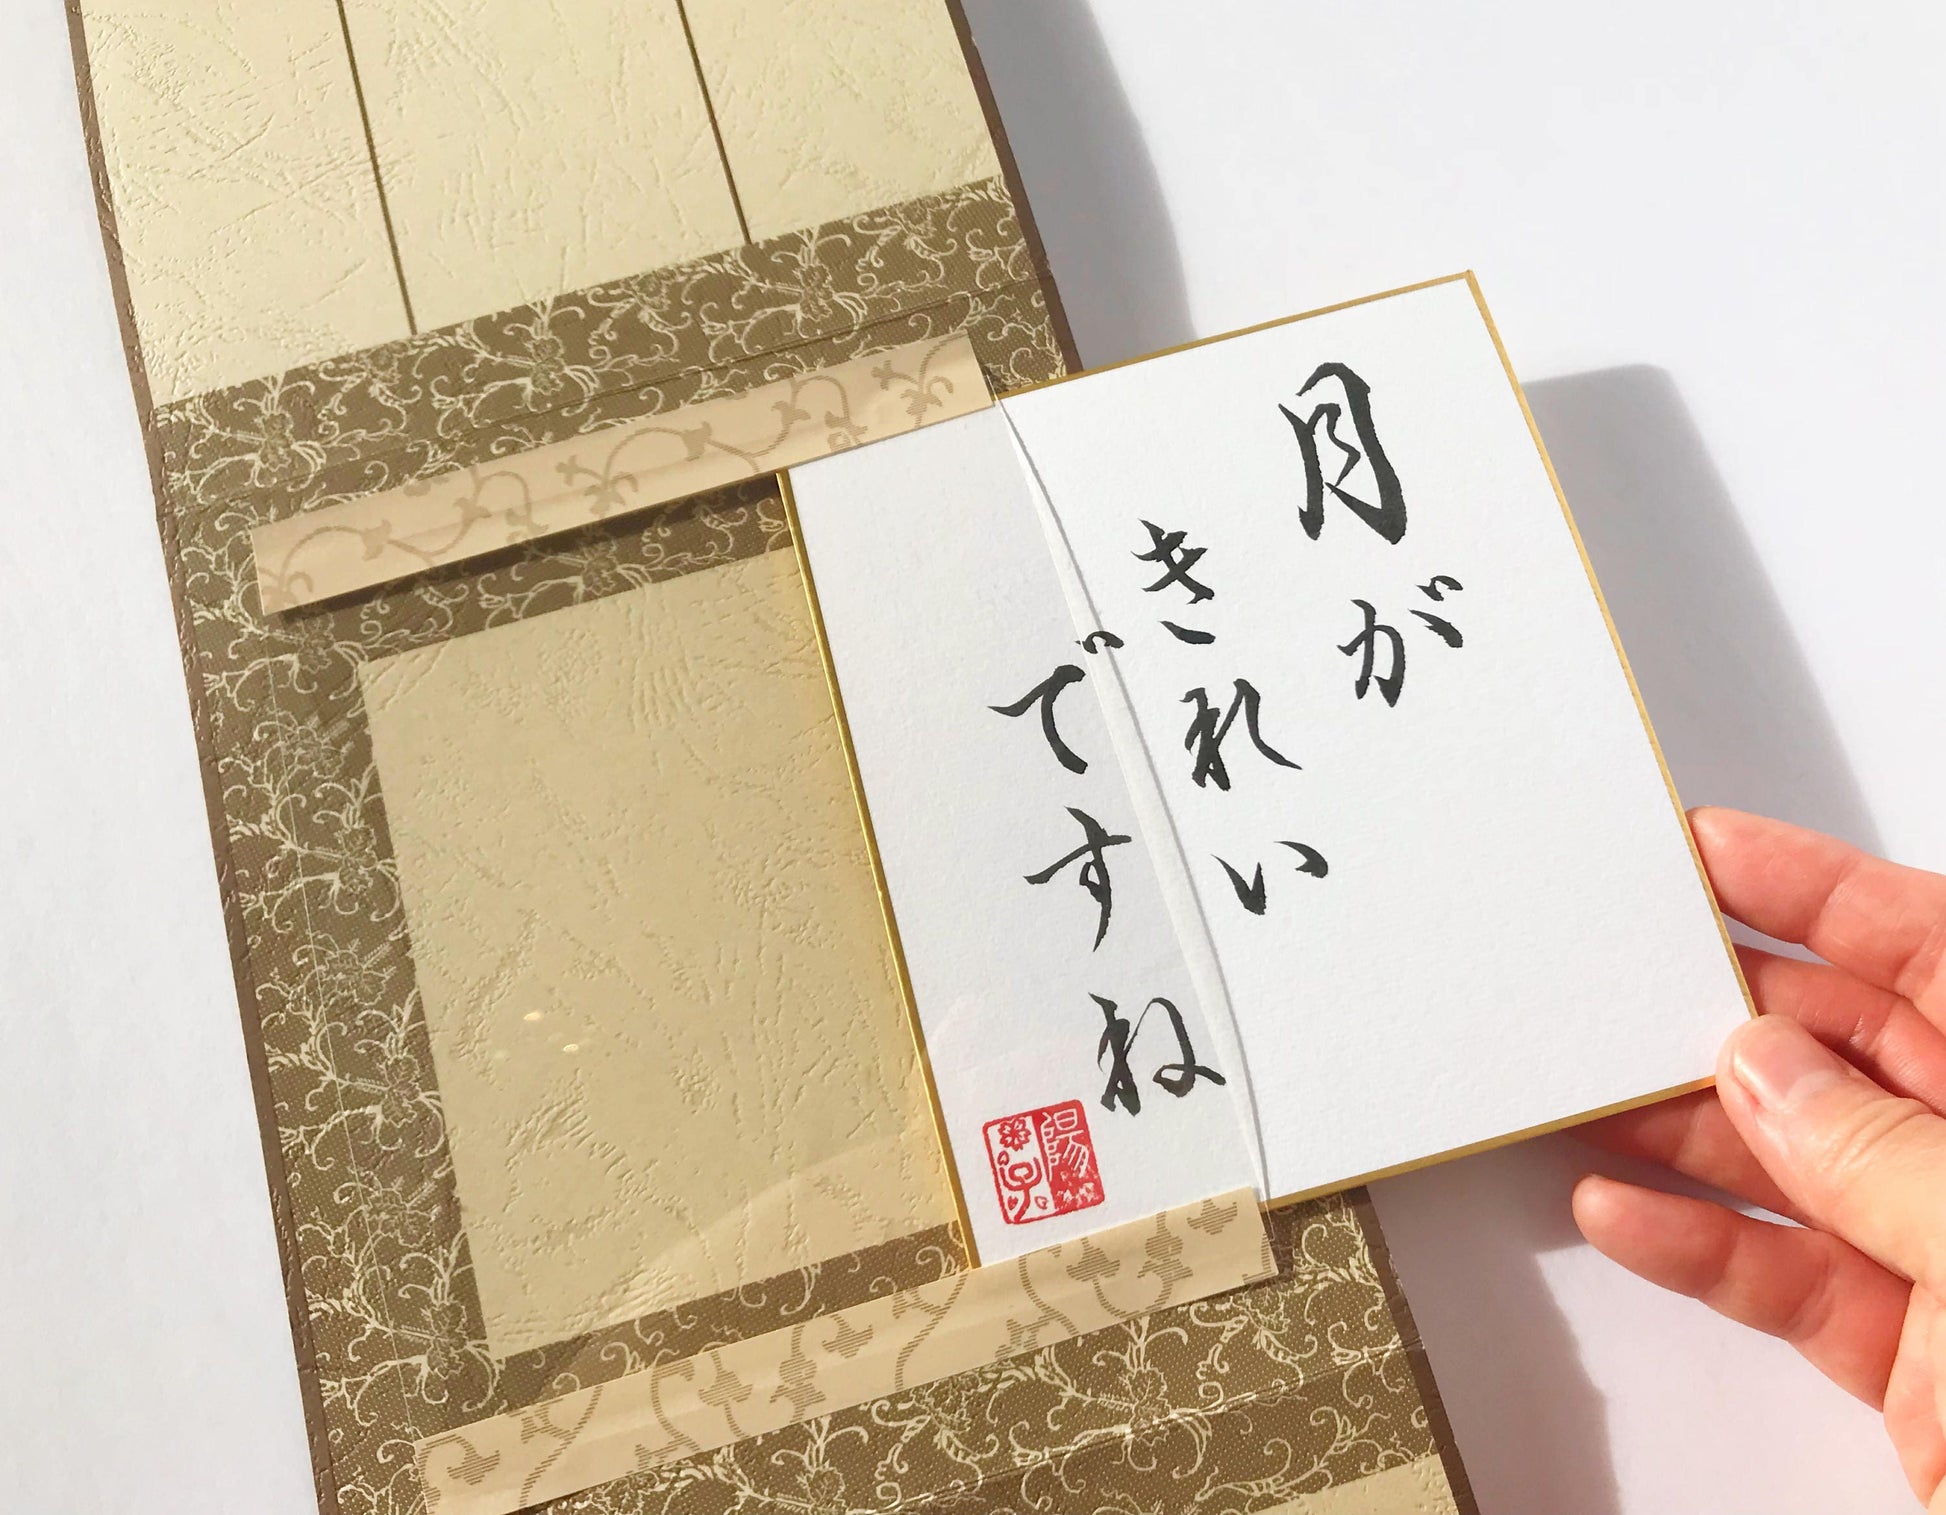 月が
きれい
ですね
陽